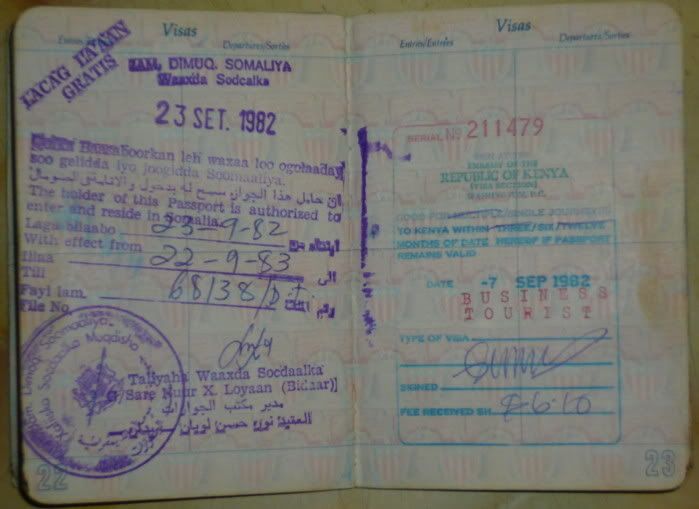 Visas
Entries/Entrées
Departures/Sorties
LACAG LA'AAN
GRATIS
JAM. DIMUQ. SOMALIYA
Waaxda Socdalka
23 SET. 1982
Baasaboorkan leh waxaa loo ogolaaday
soo gelidda iyo joogidda Soomaaliya.
ان حامل هذا الجواز سمح له بدخول والاقامة في الصومال
The holder of this Passport is authorized to
enter and reside in Somalia.
Laga bilaabo 23-9-82
With effect from
Ilaa 22-9-83 الى
Till
Fayl lam. 68138/
File No.
Taliyaha Waaxda Socdaalka
G/Sare Nuur X. Loyaan (Bidaar)
مدير مكتب الجوازات
العقيد نور حسن لويان
22
Visas
Entries/Entrées
Departures/Sorties
SERIAL No 211479
EMBASSY OF THE
REPUBLIC OF KENYA
(VISA SECTION)
WASHINGTON, D.C.
GOOD FOR MULTIPLE/SINGLE JOURNEY
TO KENYA WITHIN THREE/SIX/TWELVE
MONTHS OF DATE HEREOF IF PASSPORT
REMAINS VALID
DATE -7 SEP 1982
BUSINESS
TOURIST
TYPE OF VISA
SIGNED
FEE RECEIVED SH.
23